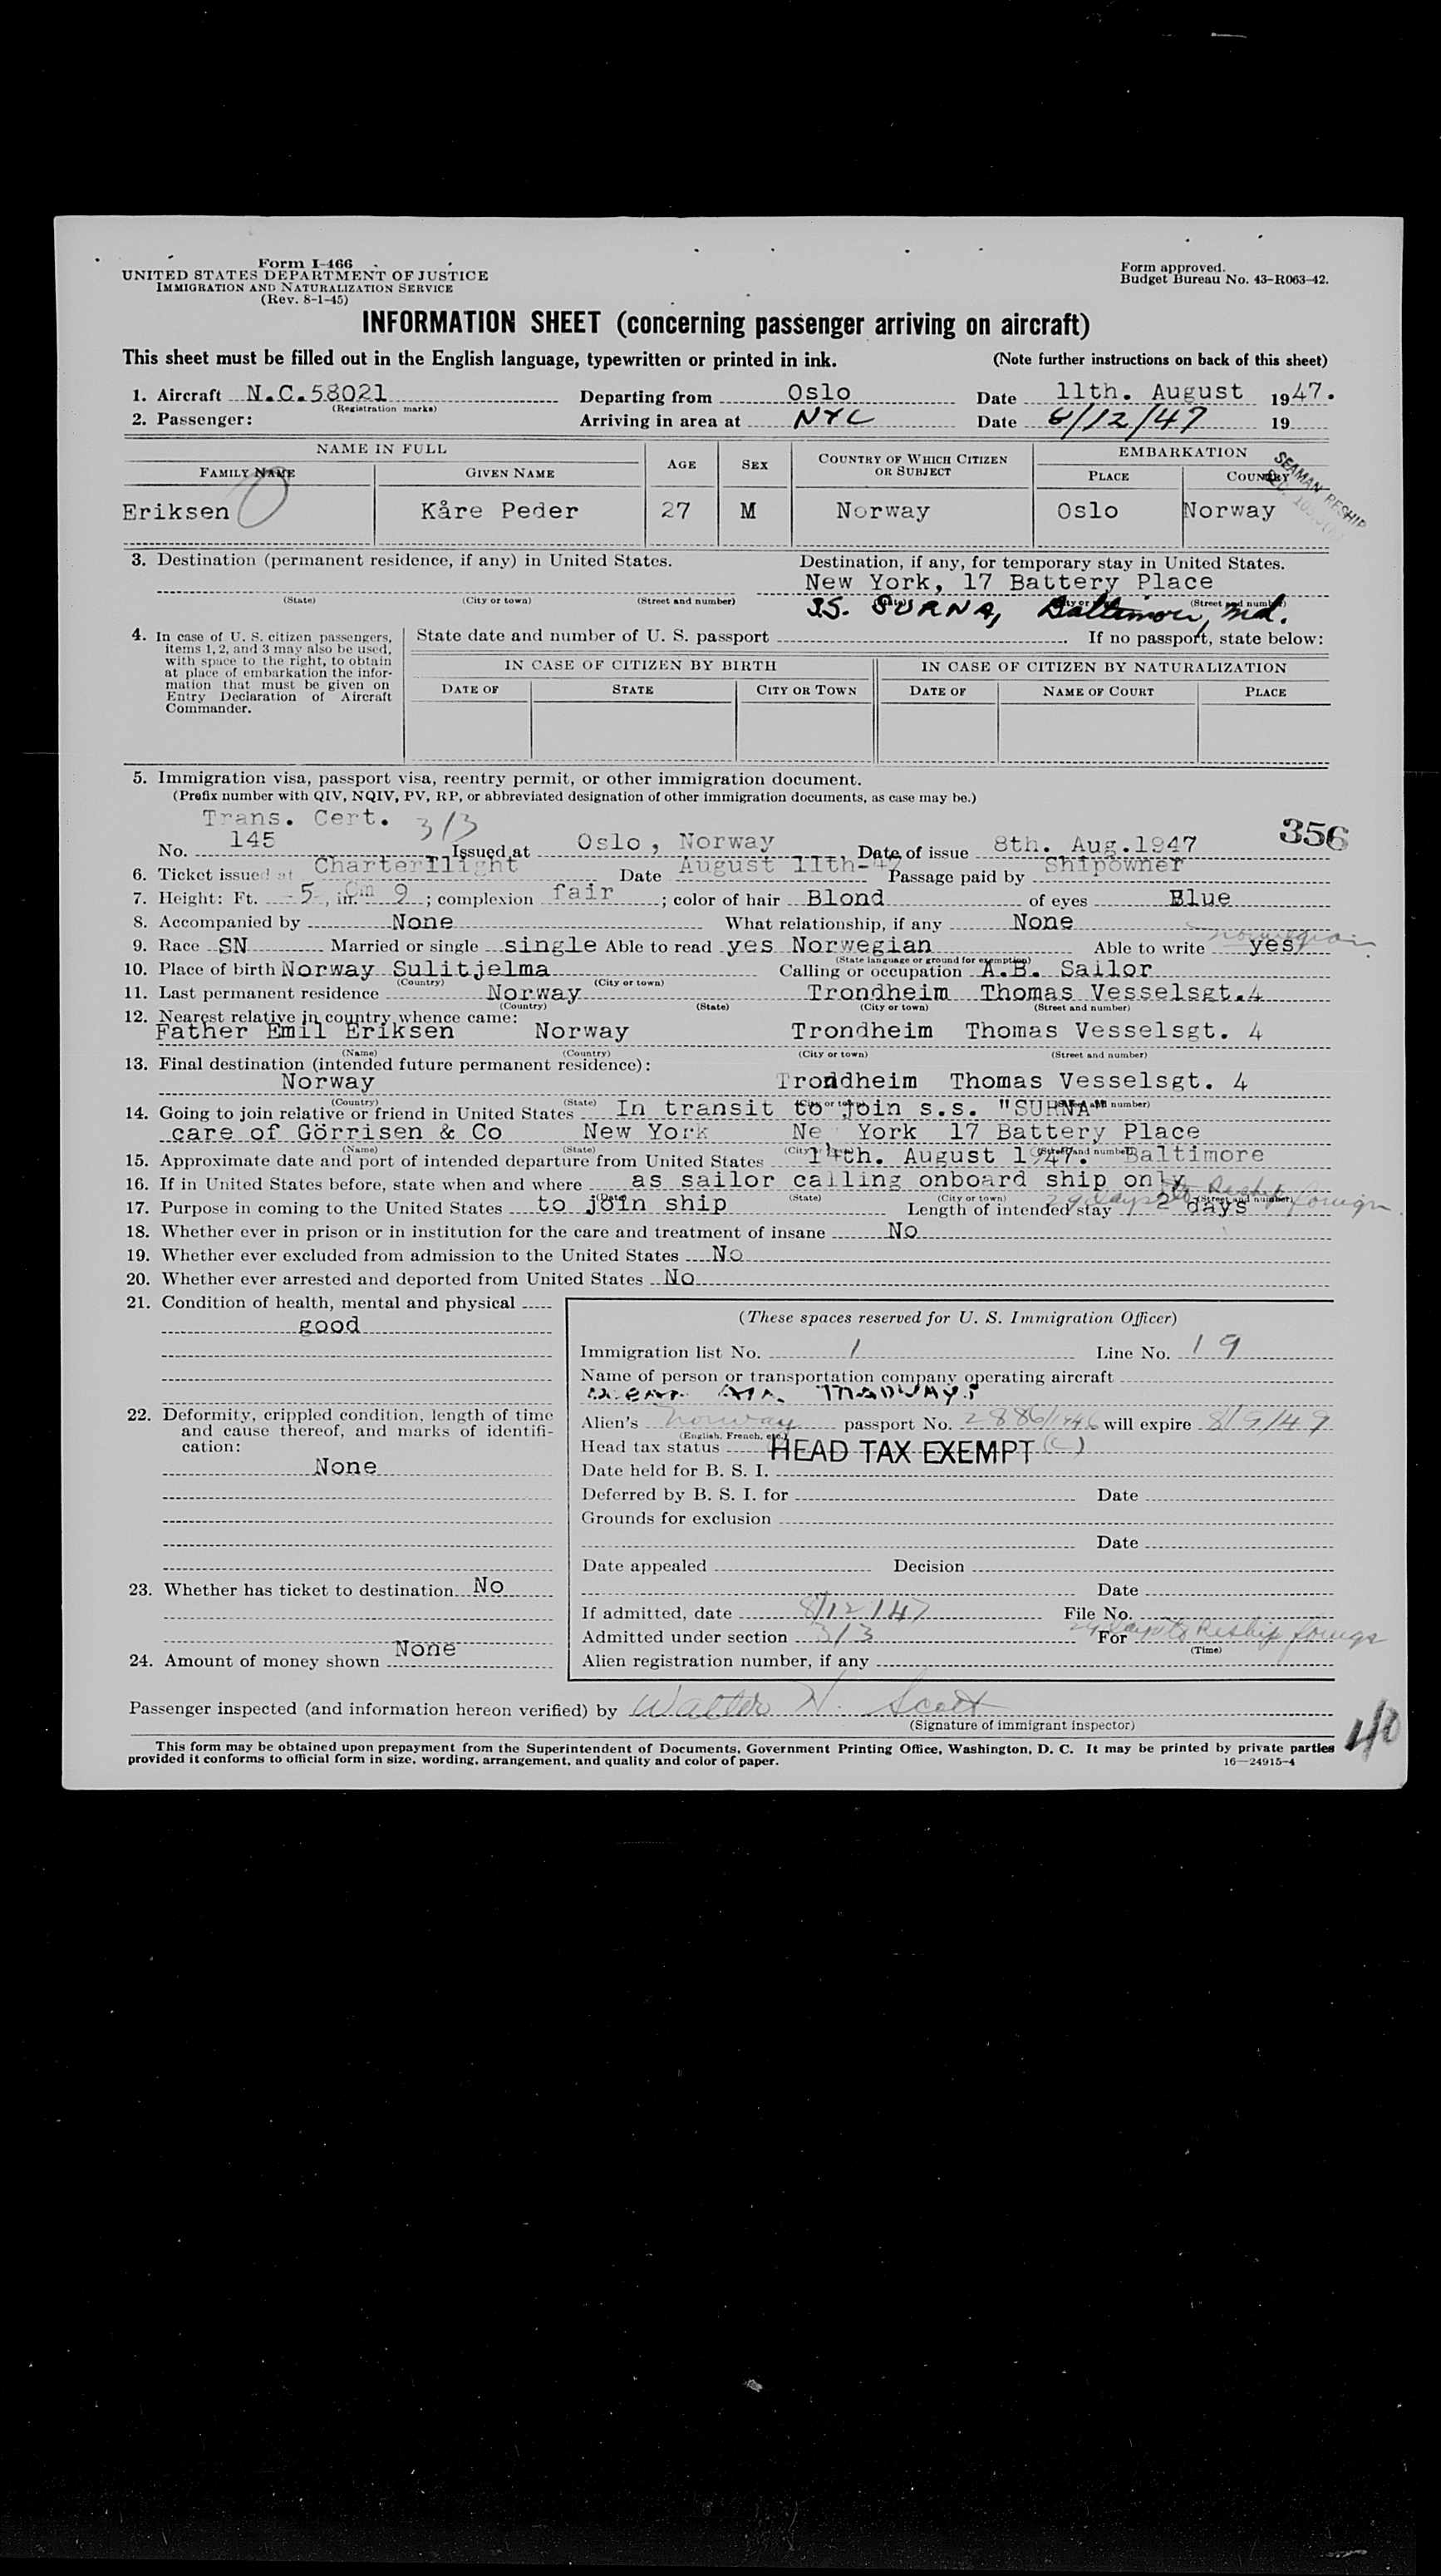 Form I-466
UNITED STATES DEPARTMENT OF JUSTICE
IMMIGRATION AND NATURALIZATION SERVICE
(Rev. 8-1-45)
Form approved.
Budget Bureau No. 43-R063-42.
INFORMATION SHEET (concerning passenger arriving on aircraft)
This sheet must be filled out in the English language, typewritten or printed in ink. (Note further instructions on back of this sheet)
1. Aircraft N.C.58021 Departing from Oslo Date 11th. August 1947.
(Registration marks)
2. Passenger: Arriving in area at NYC Date 8/12/47 19
NAME IN FULL AGE SEX COUNTRY OF WHICH CITIZEN OR SUBJECT EMBARKATION
FAMILY NAME GIVEN NAME PLACE COUNTRY
SEAMAN RESHIP
Eriksen Kåre Peder 27 M Norway Oslo Norway
3. Destination (permanent residence, if any) in United States. Destination, if any, for temporary stay in United States.
New York, 17 Battery Place
(State) (City or town) (Street and number) (Street and number)
S.S. SURNA, Baltimore, Md.
4. In case of U. S. citizen passengers, items 1, 2, and 3 may also be used, with space to the right, to obtain at place of embarkation the information that must be given on Entry Declaration of Aircraft Commander.
State date and number of U. S. passport If no passport, state below:
IN CASE OF CITIZEN BY BIRTH IN CASE OF CITIZEN BY NATURALIZATION
DATE OF STATE CITY OR TOWN DATE OF NAME OF COURT PLACE
5. Immigration visa, passport visa, reentry permit, or other immigration document.
(Prefix number with QIV, NQIV, PV, RP, or abbreviated designation of other immigration documents, as case may be.)
Trans. Cert. 3/3
No. 145 Issued at Oslo, Norway Date of issue 8th. Aug.1947 356
6. Ticket issued at Charterflight Date August 11th-47 Passage paid by Shipowner
7. Height: Ft. 5, in. 9; complexion fair; color of hair Blond of eyes Blue
8. Accompanied by None What relationship, if any None
9. Race SN Married or single single Able to read yes Norwegian Able to write yes, norwegian
(State language or ground for exemption)
10. Place of birth Norway Sulitjelma Calling or occupation A.B. Sailor
(Country) (City or town)
11. Last permanent residence Norway Trondheim Thomas Vesselsgt.4
(Country) (State) (City or town) (Street and number)
12. Nearest relative in country whence came:
Father Emil Eriksen Norway Trondheim Thomas Vesselsgt. 4
(Name) (Country) (City or town) (Street and number)
13. Final destination (intended future permanent residence):
Norway Trondheim Thomas Vesselsgt. 4
(Country) (State) (City or town) (Street and number)
14. Going to join relative or friend in United States In transit to join s.s. "SURNA"
care of Görrisen & Co New York New York 17 Battery Place
(Name) (State) (City (Street and number)
15. Approximate date and port of intended departure from United States 14th. August 1947. Baltimore
16. If in United States before, state when and where as sailor calling onboard ship only
(Date) (State) (City or town) (Street and number)
17. Purpose in coming to the United States to join ship Length of intended stay 2 days 29 days to Reship foreign
18. Whether ever in prison or in institution for the care and treatment of insane No
19. Whether ever excluded from admission to the United States No
20. Whether ever arrested and deported from United States No
21. Condition of health, mental and physical
good
22. Deformity, crippled condition, length of time and cause thereof, and marks of identification:
None
23. Whether has ticket to destination No
24. Amount of money shown None
(These spaces reserved for U. S. Immigration Officer)
Immigration list No. 1 Line No. 19
Name of person or transportation company operating aircraft
Alien's Norway passport No. 2886/1946 will expire 8/9/49
(English, French, etc.)
Head tax status HEAD TAX EXEMPT (C)
Date held for B. S. I.
Deferred by B. S. I. for Date
Grounds for exclusion
Date
Date appealed Decision
Date
If admitted, date 8/12/47 File No.
Admitted under section 3/3 For 29 days to Reship foreign
(Time)
Alien registration number, if any
Passenger inspected (and information hereon verified) by Walter H. Scott
(Signature of immigrant inspector)
This form may be obtained upon prepayment from the Superintendent of Documents, Government Printing Office, Washington, D. C. It may be printed by private parties
provided it conforms to official form in size, wording, arrangement, and quality and color of paper. 16—24915-4